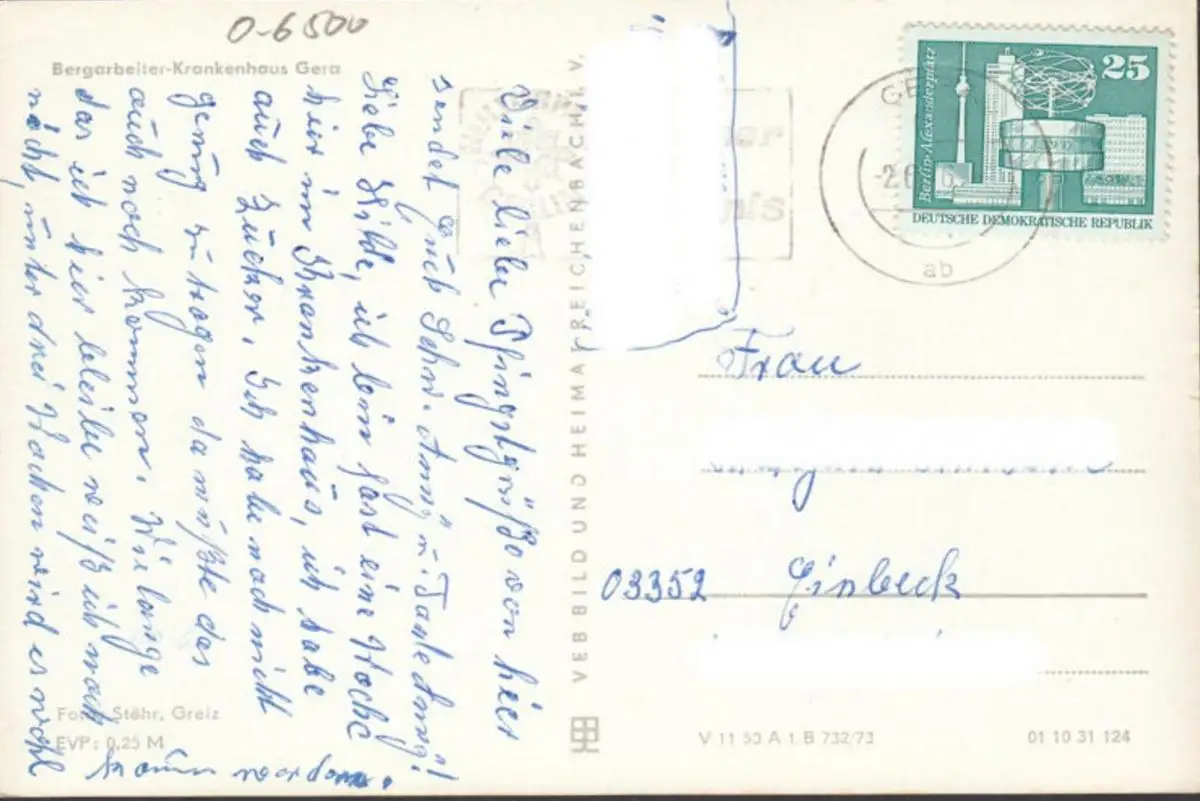 0-6500
Bergarbeiter-Krankenhaus Gera
Viele liebe Pfingstgrüße von hier
sendet Euch Schw. Anny u. Tante Anny!
Liebe Hilde, ich bin fast eine Woche
hier im Krankenhaus, ich habe
auch Zucker. Ich habe noch nicht
genug zu tragen da müßte das
auch noch kommen. Wie lange
das ich hier bleibe weiß ich noch
nicht, unter drei Wochen wird es wohl
kaum werden.
Foto: Stöhr, Greiz
EVP: 0,25 M
VEB BILD UND HEIMAT REICHENBACH I. V.
V 11 50 A 1 B 732/73
01 10 31 124
Berlin-Alexanderplatz
25
DEUTSCHE DEMOKRATISCHE REPUBLIK
ab
Frau
03352 Einbeck